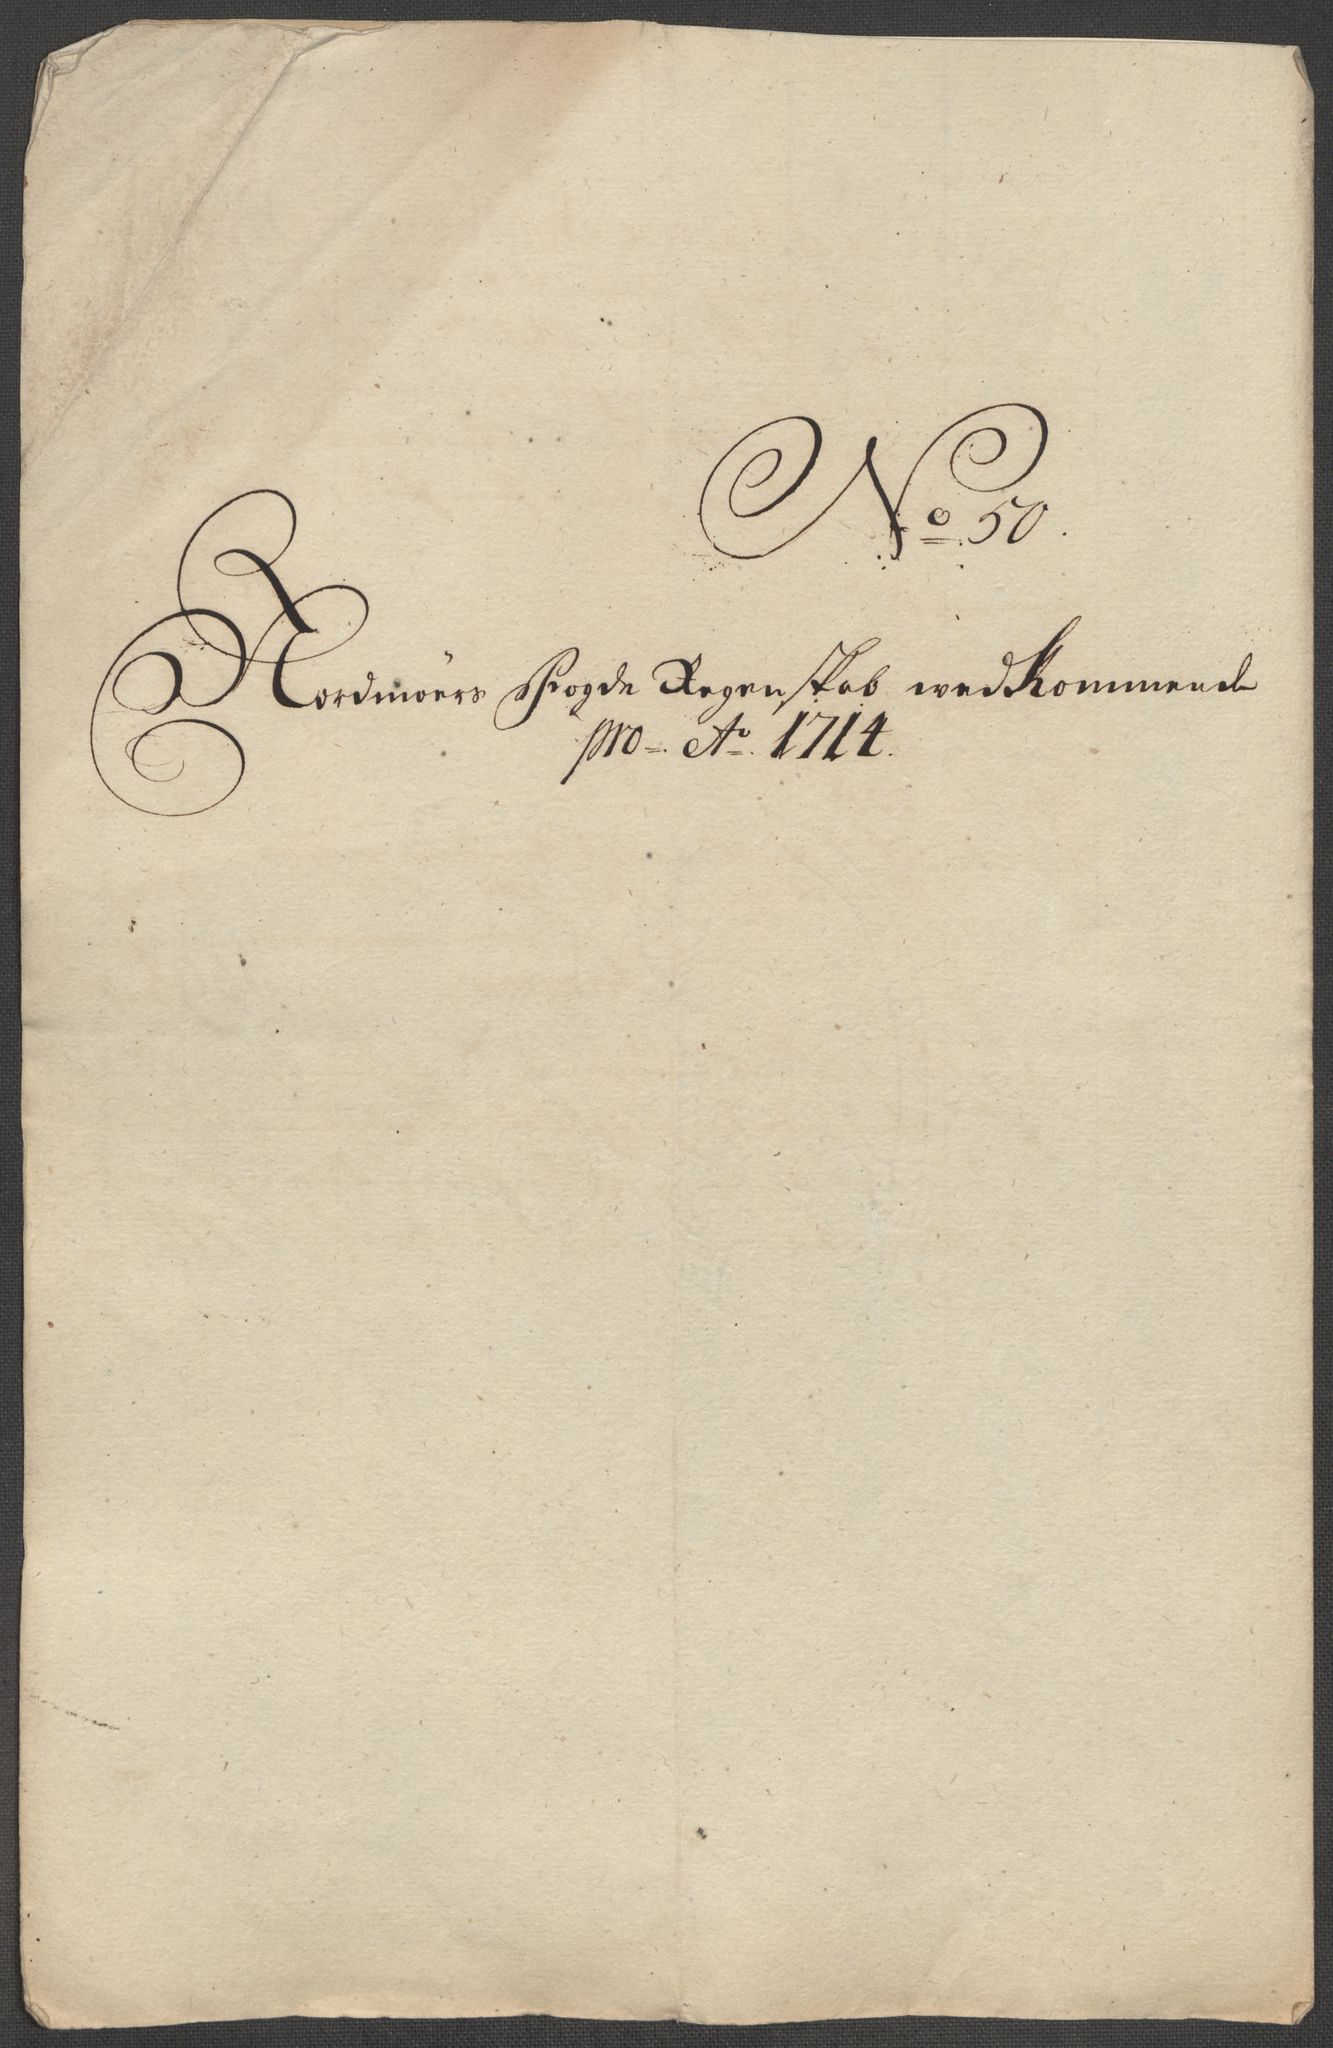 No 50.
Nordmøers Fogde Regenskab wedkommende
pro Ao. 1714.